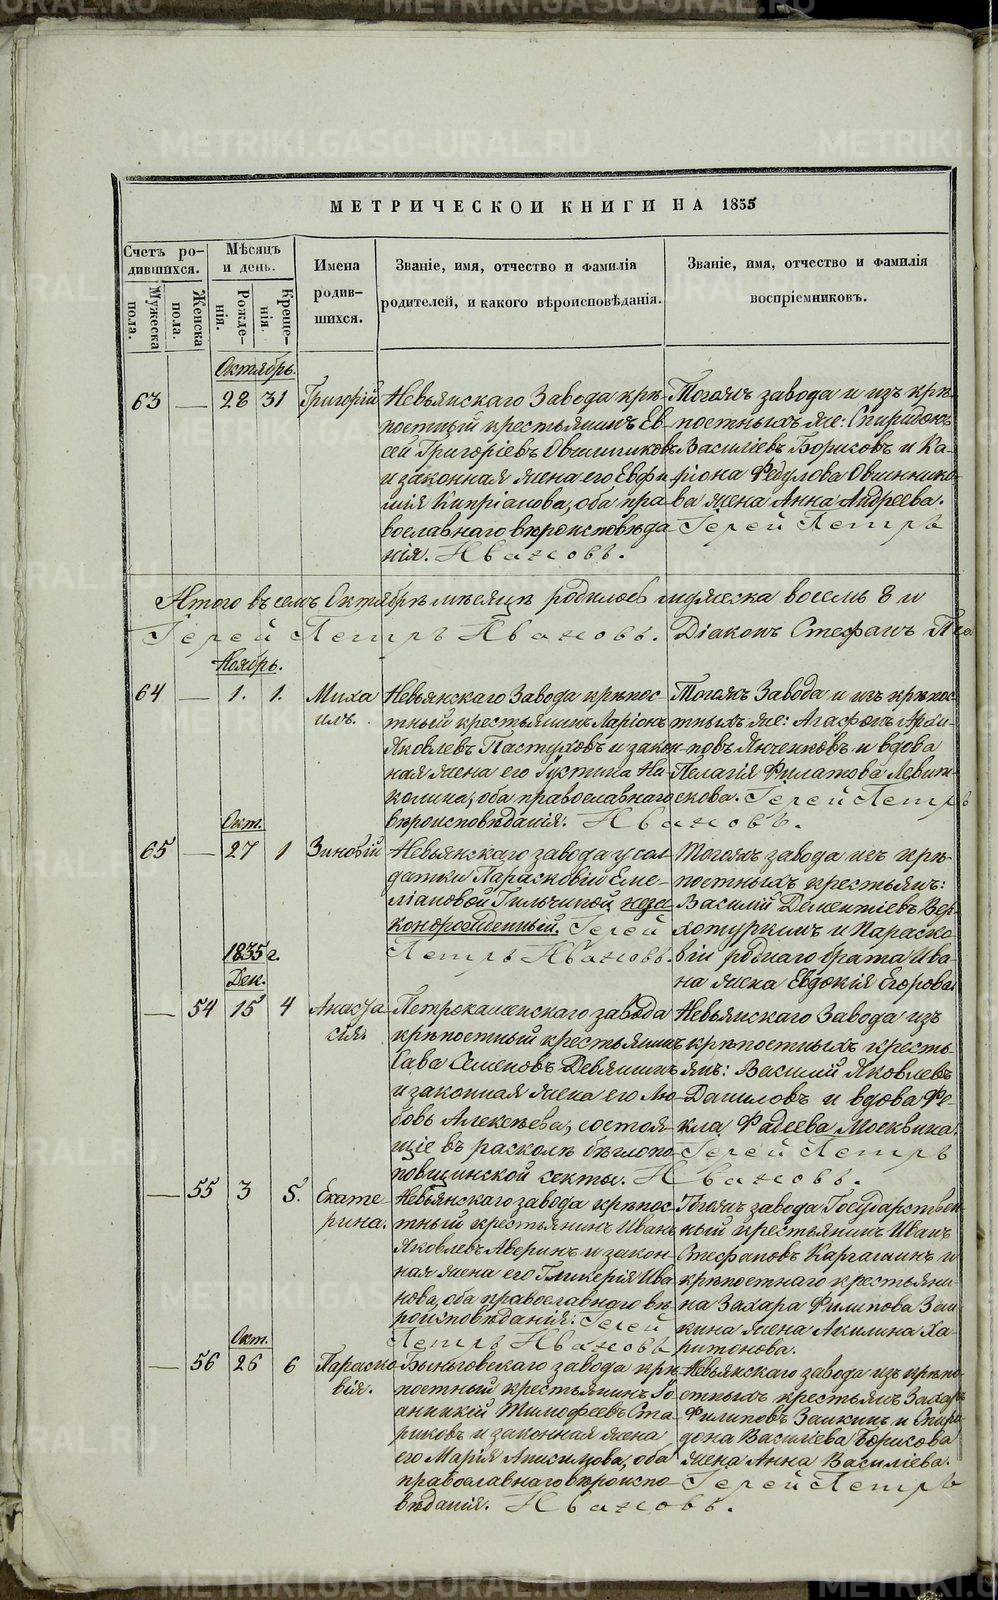 МЕТРИЧЕСКОЙ КНИГИ НА 1855
Счетъ ро-
дившихся.
Мужеска
пола.
Женска
пола.
Мѣсяцъ
и день.
Рожде-
нія.
Креще-
нія.
Имена
родив-
шихся.
Званіе, имя, отчество и фамилія
родителей, и какого вѣроисповѣданія.
Званіе, имя, отчество и фамилія
воспріемниковъ.
Октябрь.
63 — 28 31 Григорій
Невьянскаго Завода крѣ-
постный крестьянинъ Ев-
сей Григоріевъ Овчинниковъ
и законная жена его Евфи
мія Кипріанова, оба пра-
вославнаго вѣроисповѣда
нія. Ивановъ.
Тогожъ завода и изъ крѣ-
постныхъ же: Спиридонъ
Василіевъ Борисовъ и Ка-
ріона Федулова Овчинико-
ва жена Анна Андреева.
Іерей Петръ
Итого въ семъ Октябрѣ мѣсяцѣ родилось мужеска восемь 8 и
Іерей Петръ Ивановъ. Діаконъ Стефанъ
Ноябрь.
64 — 1. 1. Миха
илъ.
Невьянскаго Завода крѣпос
тный крестьянинъ Ларіонъ
Яковлевъ Пастуховъ и закон-
ная жена его Іустина Ни
колина, оба православнаго
вѣроисповѣданія. Ивановъ.
Тогожъ Завода и изъ крѣпос
тныхъ же: Агафонъ Архи-
повъ Янченковъ и вдова
Пелагія Филатова Левит-
скова. Іерей Петръ
Окт.
65 — 27 1 Зиновій
Невьянскаго завода у сол
датки Парасковіи Еме-
ліановой Гильчиной неза-
коннорожденный. Іерей
Петръ Ивановъ.
Тогожъ завода изъ крѣ-
постныхъ крестьянъ:
Василій Дементіевъ Вер-
хотуркинъ и Параско-
віи роднаго брата Ива-
на жена Евдокія Егорова.
1835 г.
Дек.
— 54 15 4 Анаста
сія
Петрокаменскаго завода
крѣпостный крестьянинъ
Сава Семеновъ Девяшинъ
и законная жена его Лю-
бовь Алексѣева, состоя-
щіе въ расколѣ бѣглопо-
повщинской секты. Ивановъ.
Невьянскаго Завода изъ
крѣпостныхъ кресть-
янъ: Василій Яковлевъ
Даниловъ и вдова Ѳе-
кла Фадеева Москвина.
Іерей Петръ
— 55 3 5. Екате
рина.
Невьянскаго завода крѣпос
тный крестьянинъ Иванъ
Яковлевъ Аверинъ и закон-
ная жена его Гликерія Ива
нова, оба православнаго вѣ
роисповѣданія. Іерей
Петръ Ивановъ
Тогожъ завода Государствен
ный крестьянинъ Иванъ
Стефановъ Каргашинъ и
крѣпостнаго крестьяни
на Захара Филипова Заи
кина жена Акилина Ха-
ритонова.
Окт.
— 56 26 6 Параско
вія.
Быньговскаго завода крѣ
постный крестьянинъ Іо
анникій Тимофеевъ Ста
риковъ и законная жена
его Марія Анисимова, оба
православнаго вѣроиспо-
вѣданія. Ивановъ.
Невьянскаго завода изъ крѣпо
стныхъ крестьянъ Захаръ
Филиповъ Заикинъ и Спири
дона Василіева Борисова
жена Анна Василіева.
Іерей Петръ
METRIKI.GASO-URAL.RU